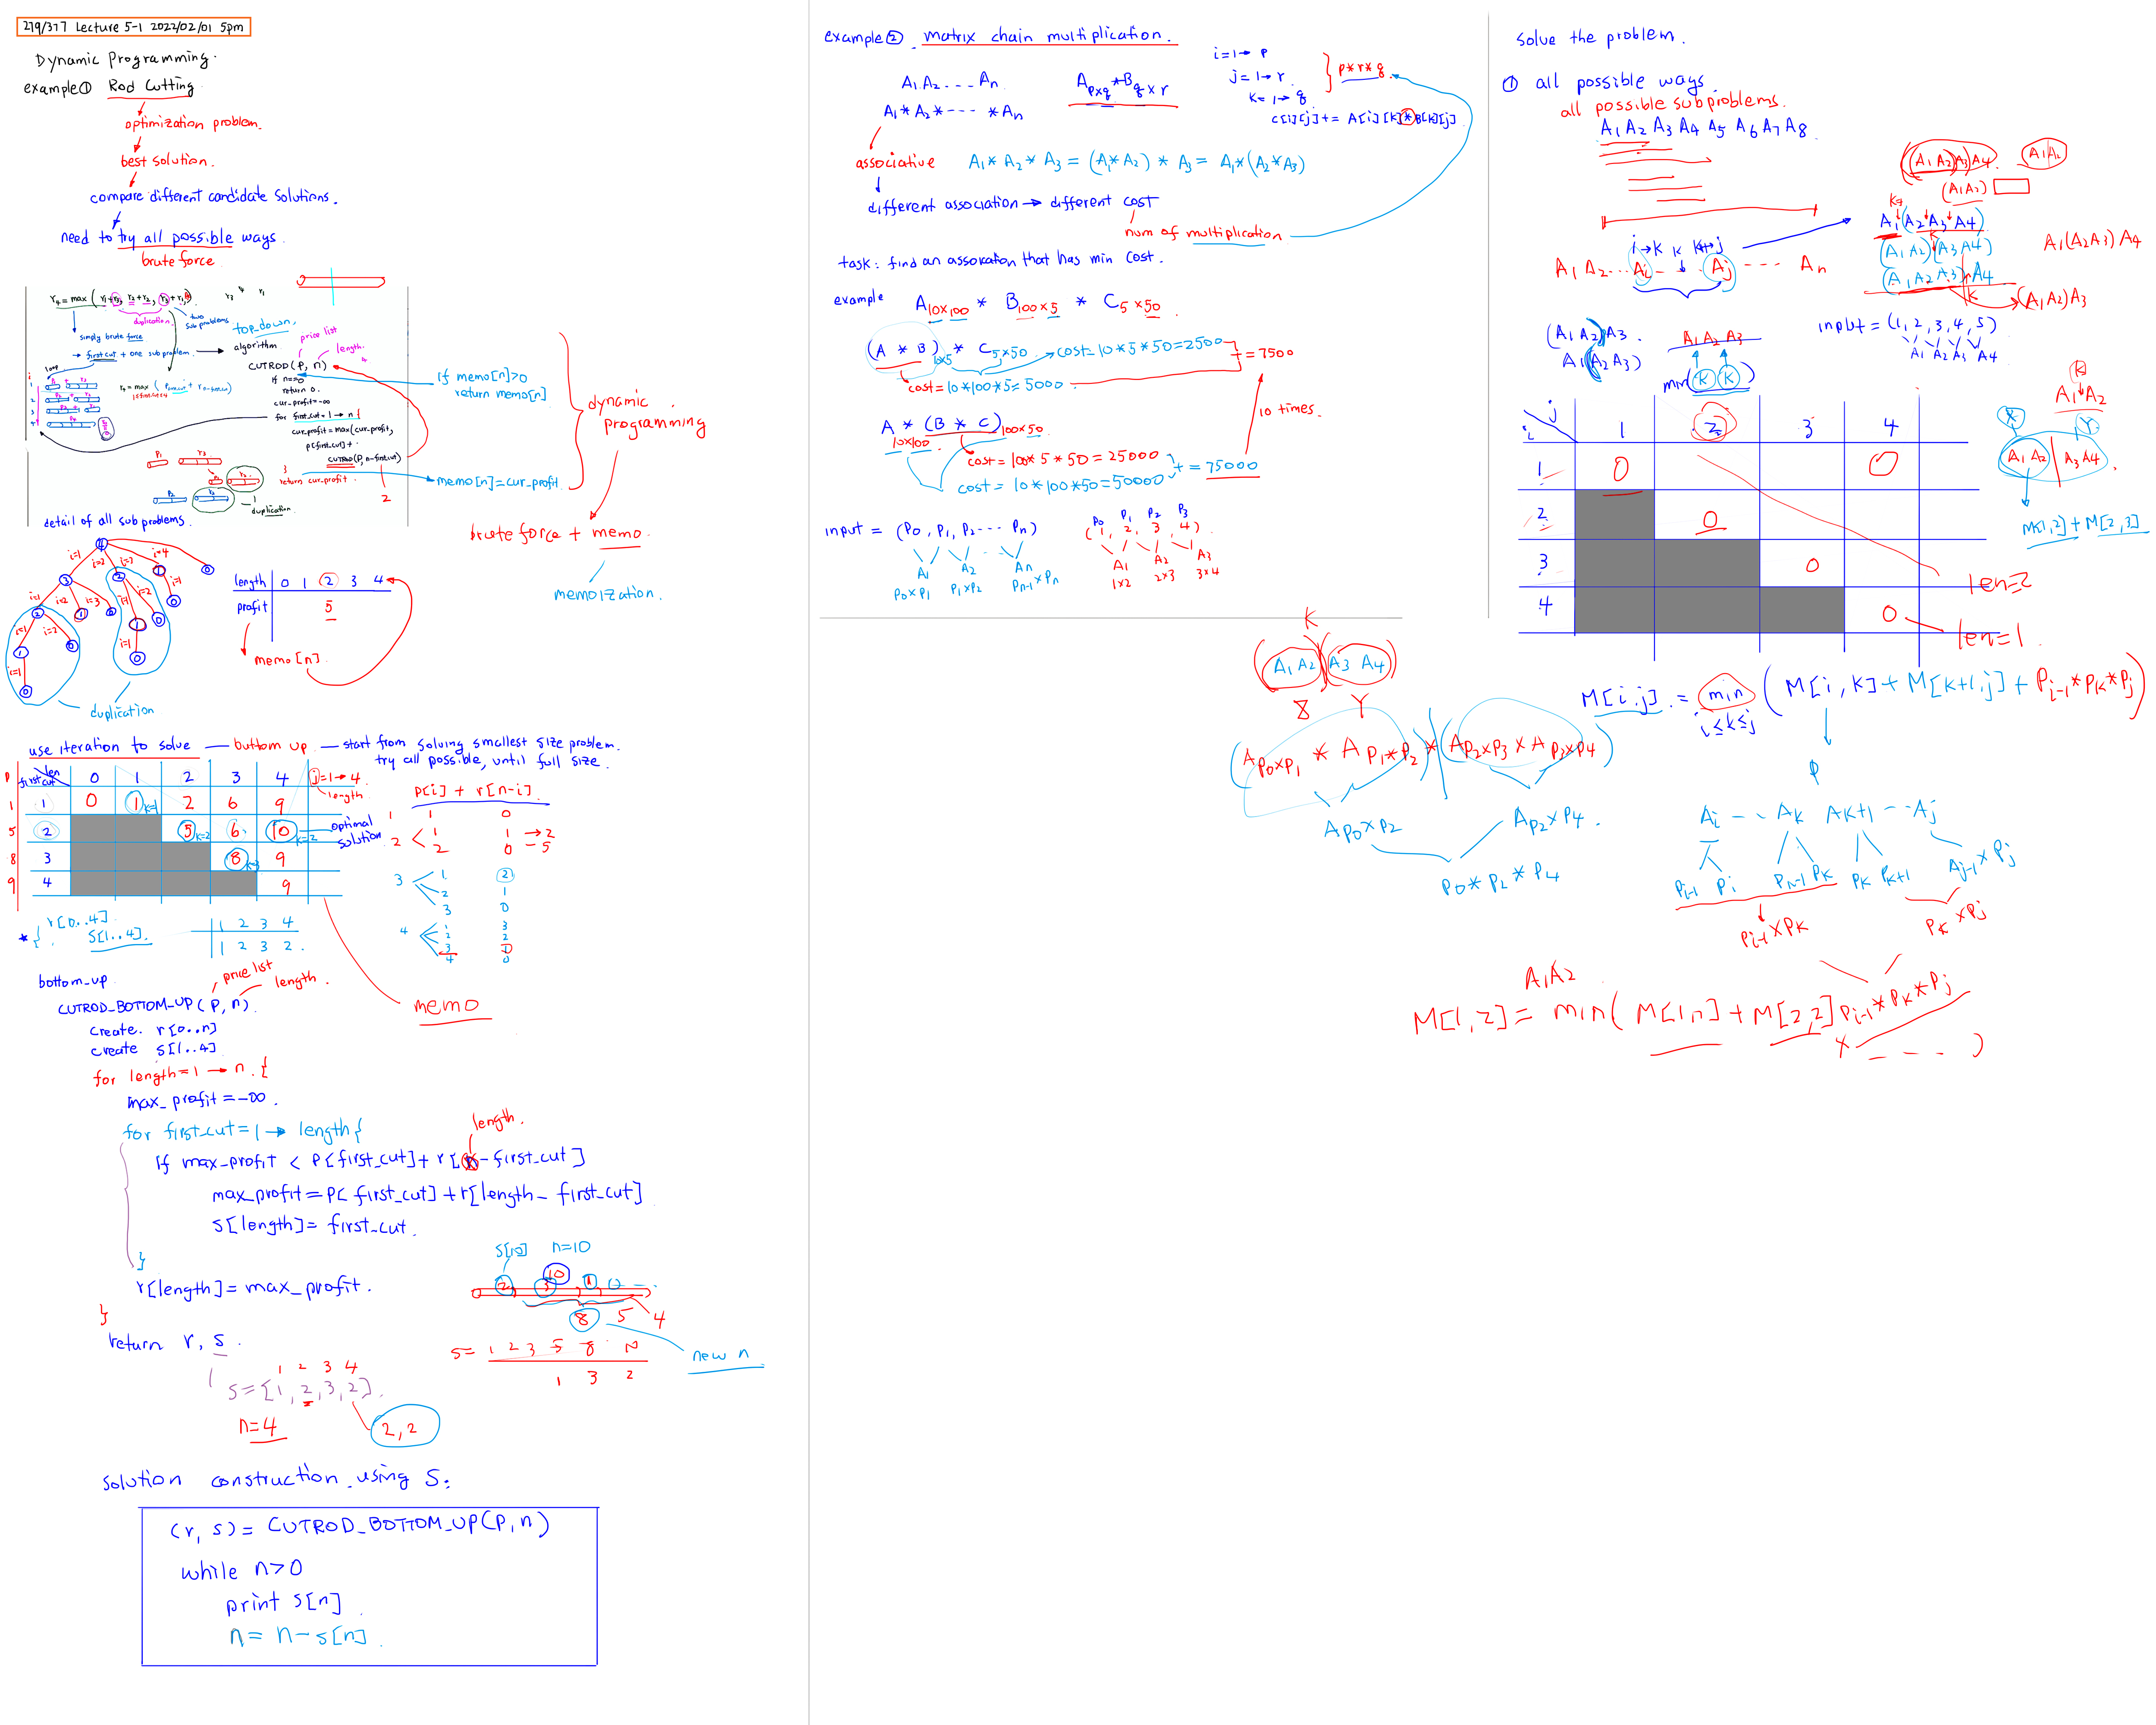 279/377 Lecture 5-1 2022/02/01 5pm
Dynamic Programming.
example① Rod Cutting
optimization problem.
best solution.
compare different candidate solutions.
need to try all possible ways.
brute force
r4 = max ( r1+r3, r2+r2, r3+r1)
duplication
two sub problems
simply brute force
→ first cut + one subproblem
top_down.
algorithm
price list
length.
CUTROD(P, n)
if n==0
return 0.
cur_profit=-∞
for first_cut = 1 → n {
cur_profit = max(cur_profit,
p[first_cut] +
CUTROD(P, n-first_cut)
}
return cur_profit.
duplication
2
If memo[n]>0
return memo[n]
memo[n]=cur_profit.
dynamic
programming
brute force + memo.
memoization.
detail of all sub problems.
4
i=1 i=2 i=3 i=4
3 2 1 0
duplication
length 0 1 2 3 4
profit 5
memo[n]
use iteration to solve — buttom up. — start from solving smallest size problem.
try all possible, until full size.
P first cut len 0 1 2 3 4 j=1→4
length
1 1 0 1 k=1 2 6 9
5 2 5 k=2 6 10 k=2 optimal solution
8 3 8 k=3 9
9 4 9
p[i] + r[n-i]
1 1 0
2 1 1 → 2
2 0 - 5
3 1 2
2 1
3 0
4 1 3
2 2
3 1
4 0
* { r[0..4].
s[1..4].
1 2 3 4
1 2 3 2
memo
bottom_up
price list
length.
CUTROD_BOTTOM_UP(P, n)
create. r[0..n]
create s[1..4]
for length=1 → n. {
max_profit=-∞.
for first_cut = 1 → length{
length.
If max_profit < P[first_cut]+ r[n-first_cut]
max_profit = P[first_cut] + r[length- first_cut]
s[length]= first_cut.
}
r[length] = max_profit.
}
return r, s.
1 2 3 4
s=[1, 2, 3, 2].
n=4
2, 2
s[10] n=10
10
2 3 1
8 5 4
new n
s= 1 2 3 5 8 N
1 3 2
solution construction using S:
(r, s) = CUTROD_BOTTOM_UP(P, n)
while n>0
print s[n]
n = n - s[n]
example② . matrix chain multiplication.
A1.A2.....An
A1*A2*----*An
Apxq*Bqxr
i=1→ p
j=1→r.
k=1→q
p*r*q
c[i][j] += A[i][k]*B[k][j]
associative A1*A2*A3 = (A1*A2)*A3 = A1*(A2*A3)
different association → different cost
num of multiplication
task: find an assoration that has min cost.
example A10x100 * B100x5 * C5x50
(A * B) 10x5 * C5x50 cost=10*5*50=2500
cost=10*100*5=5000
+ = 7500
A * (B * C) 100x50
10x100
cost=100*5*50=25000
cost=10*100*50=50000
+ = 75000
10 times.
input = (P0, P1, P2.... Pn)
A1 A2 An
P0xP1 P1xP2 Pn-1xPn
P0 P1 P2 P3
(1, 2, 3, 4).
A1 A2 A3
1x2 2x3 3x4
solve the problem.
① all possible ways.
all possible subproblems.
A1 A2 A3 A4 A5 A6 A7 A8
((A1A2)A3)A4 A1A2
(A1A2)
A1(A2A3A4)
(A1A2)(A3A4)
(A1A2A3)A4
(A1A2)A3
A1(A2A3)A4
i→k k k+1 j
A1 A2...Ai - - Aj ---- An
(A1A2)A3.
A1(A2A3)
A1 A2 A3
min(k k)
input=(1, 2, 3, 4, 5)
A1 A2 A3 A4
j
i 1 2 3 4
1 0 0
2 0
3 0
4 0
len=2
len=1.
k
A1A2
X Y
A1A2 A3A4.
M[1,2]+M[2,3]
K
(A1A2)(A3A4)
X Y
(AP0xP1 * AP1*P2) * (AP2xP3 x AP3xP4)
AP0xP2 AP2xP4.
P0*P2*P4
M[i.j] = min (M[i,k]+M[k+1,j]+Pi-1*Pk*Pj)
i≤k≤j
P
Ai -- Ak Ak+1 -- Aj
Pi-1 Pi Pk-1 Pk Pk Pk+1 Aj-1xPj
Pi-1xPk Pk xPj
A1A2
M[1,2] = min( M[1,1] + M[2,2] Pi-1*Pk*Pj
---- )